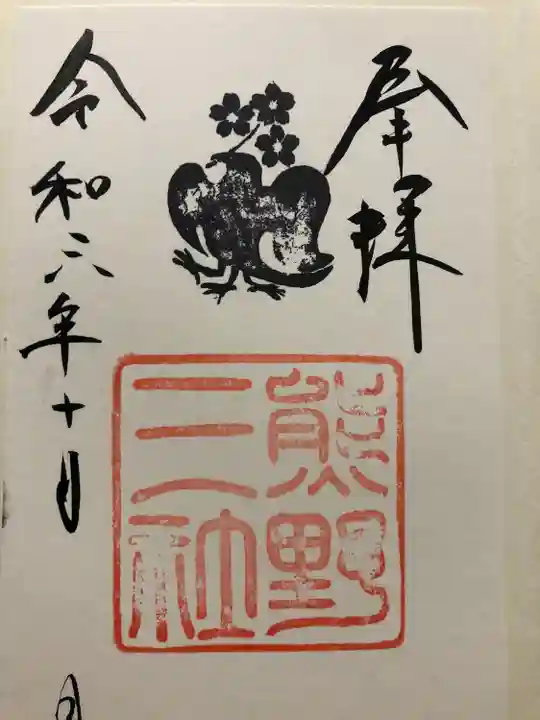 奉拝
熊野
三社
令和六年十月